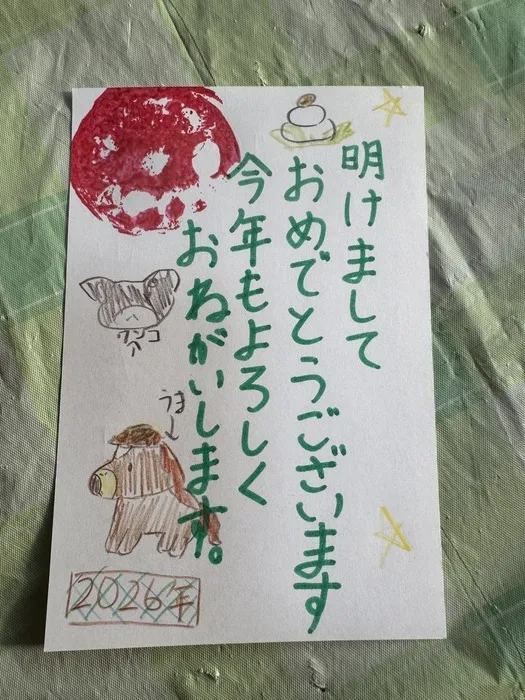 明けまして
おめでとうございます
今年もよろしく
おねがいします。
ワンコ
うま
2026年